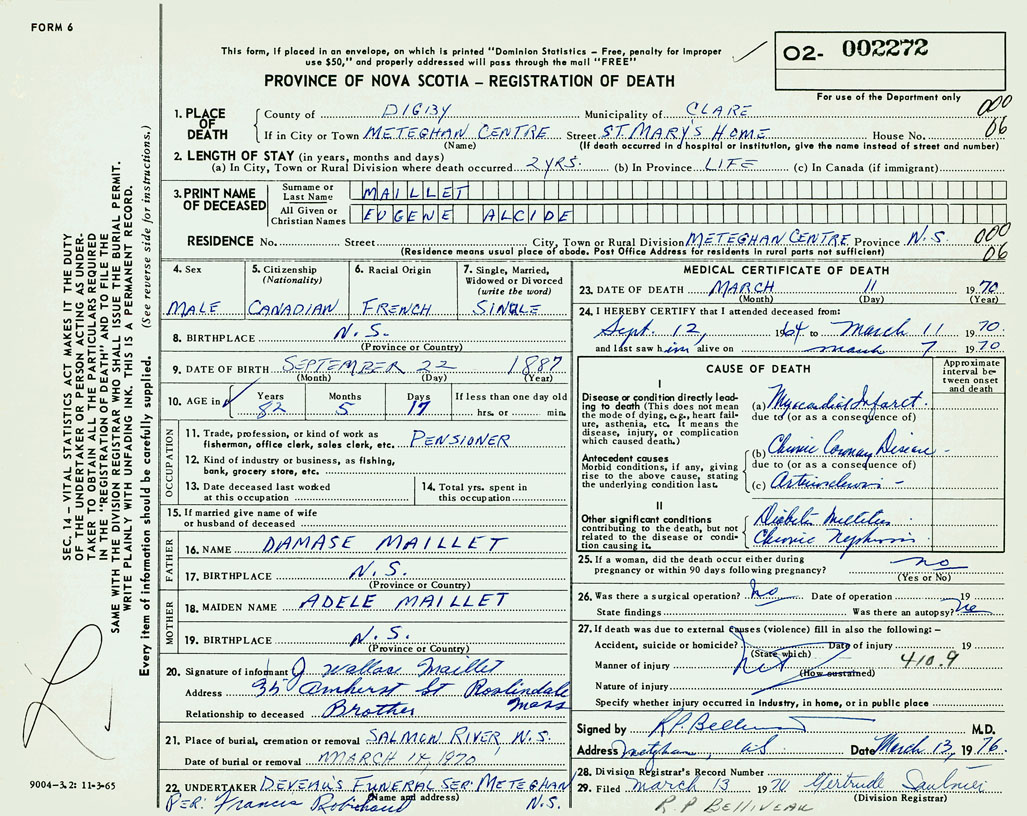 FORM 6
This form, if placed in an envelope, on which is printed "Dominion Statistics – Free, penalty for improper
use $50," and properly addressed will pass through the mail "FREE"
PROVINCE OF NOVA SCOTIA – REGISTRATION OF DEATH
O2- 002272
For use of the Department only
SEC. 14 – VITAL STATISTICS ACT MAKES IT THE DUTY
OF THE UNDERTAKER OR PERSON ACTING AS UNDER-
TAKER TO OBTAIN ALL THE PARTICULARS REQUIRED
IN THE "REGISTRATION OF DEATH" AND TO FILE THE
SAME WITH THE DIVISION REGISTRAR WHO SHALL ISSUE THE BURIAL PERMIT.
WRITE PLAINLY WITH UNFADING INK. THIS IS A PERMANENT RECORD.
Every item of information should be carefully supplied. (See reverse side for instructions.)
1. PLACE OF DEATH
County of DIGBY Municipality of CLARE 000
If in City or Town METEGHAN CENTRE Street ST. MARY'S HOME House No. 06
(Name) (If death occurred in a hospital or institution, give the name instead of street and number)
2. LENGTH OF STAY (in years, months and days)
(a) In City, Town or Rural Division where death occurred 2 YRS. (b) In Province LIFE (c) In Canada (if immigrant)
3. PRINT NAME OF DECEASED
Surname or Last Name MAILLET
All Given or Christian Names EUGENE ALCIDE
RESIDENCE No. Street City, Town or Rural Division METEGHAN CENTRE Province N.S. 000
(Residence means usual place of abode. Post Office Address for residents in rural parts not sufficient) 06
4. Sex MALE
5. Citizenship (Nationality) CANADIAN
6. Racial Origin FRENCH
7. Single, Married, Widowed or Divorced (write the word) SINGLE
8. BIRTHPLACE N.S.
(Province or Country)
9. DATE OF BIRTH SEPTEMBER 22 1887
(Month) (Day) (Year)
10. AGE in Years 82 Months 5 Days 17 If less than one day old hrs. or min.
OCCUPATION
11. Trade, profession, or kind of work as
fisherman, office clerk, sales clerk, etc. PENSIONER
12. Kind of industry or business, as fishing,
bank, grocery store, etc.
13. Date deceased last worked at this occupation
14. Total yrs. spent in this occupation
15. If married give name of wife
or husband of deceased
FATHER
16. NAME DAMASE MAILLET
17. BIRTHPLACE N.S.
(Province or Country)
MOTHER
18. MAIDEN NAME ADELE MAILLET
19. BIRTHPLACE N.S.
(Province or Country)
20. Signature of informant J Wallace Maillet
Address 35 Amherst St Roslindale
Mass
Relationship to deceased Brother
21. Place of burial, cremation or removal SALMON RIVER, N.S.
Date of burial or removal MARCH 14, 1970
22. UNDERTAKER DEVEAU'S FUNERAL SER METEGHAN
(Name and address) N.S.
PER: Francis Robichaud
9004–3.2: 11-3-65
MEDICAL CERTIFICATE OF DEATH
23. DATE OF DEATH MARCH 11 1970
(Month) (Day) (Year)
24. I HEREBY CERTIFY that I attended deceased from:
Sept. 12, 1964 to March 11 1970
and last saw him alive on March 7 1970
CAUSE OF DEATH
Approximate interval between onset and death
I
Disease or condition directly lead-
ing to death (This does not mean
the mode of dying, e.g., heart fail-
ure, asthenia, etc. It means the
disease, injury, or complication
which caused death.)
(a) Myocardial Infarct.
due to (or as a consequence of)
Antecedent causes
Morbid conditions, if any, giving
rise to the above cause, stating
the underlying condition last.
(b) Chronic Coronary Disease -
due to (or as a consequence of)
(c) Arteriosclerosis -
II
Other significant conditions
contributing to the death, but not
related to the disease or condi-
tion causing it.
Diabetes Mellitus
Chronic Nephrosis
25. If a woman, did the death occur either during
pregnancy or within 90 days following pregnancy? no
(Yes or No)
26. Was there a surgical operation? No Date of operation 19
State findings Was there an autopsy? no
27. If death was due to external causes (violence) fill in also the following: –
Accident, suicide or homicide? Date of injury 19
(State which)
Manner of injury 410.9
(How sustained)
Nature of injury
Specify whether injury occurred in industry, in home, or in public place
Signed by R.P. Belliveau M.D.
Address Meteghan, NS Date March 13, 1976.
28. Division Registrar's Record Number
29. Filed March 13 1970 Gertrude Saulnier
(Division Registrar)
R.P BELLIVEAU